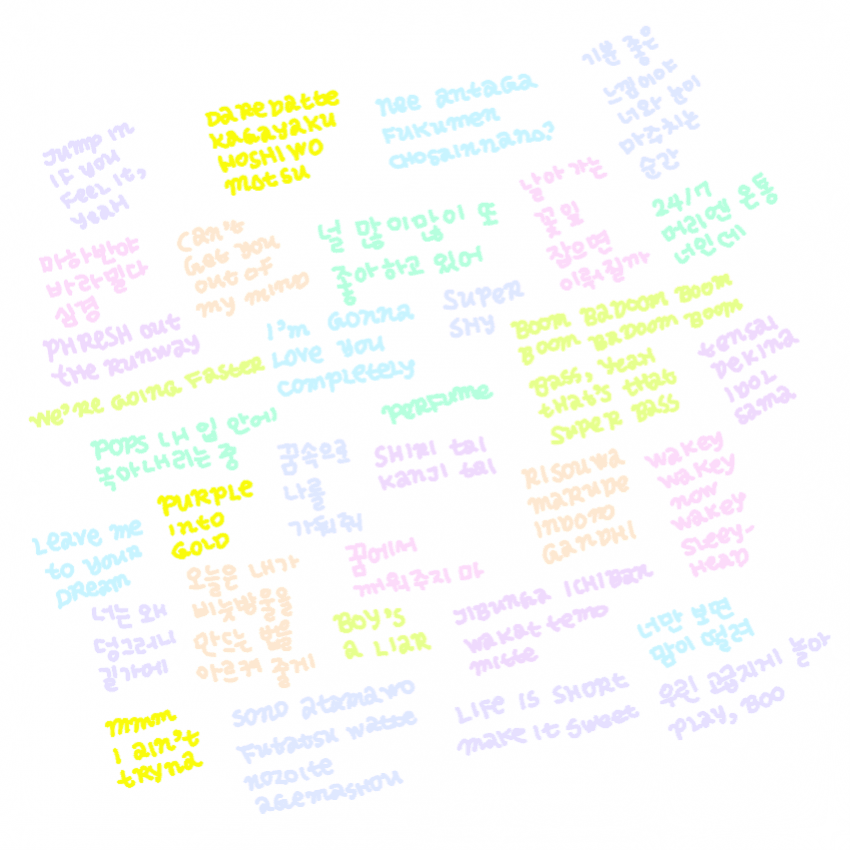 Jump in
if you
feel it,
yeah
Daredatte
kagayaku
hoshi wo
motsu
nee antaga
fukumen
chosainnano?
기분 좋은
느낌이야
너와 눈이
마주치는
순간
마하반야
바라밀다
심경
Can't
get you
out of
my mind
널 많이많이 또
좋아하고 있어
날아가는
꽃잎
잡으면
이뤄질까
24/7
머리엔 온통
너인데
phresh out
the runway
I'm gonna
love you
completely
super
shy
Boom Badoom Boom
Boom Badoom Boom
Bass, yeah
that's that
super bass
tensai
dekina
idol
sama
we're going faster
perfume
Pops 내 입 안에
녹아내리는 중
꿈속으로
나를
가둬줘
shiri tai
kanji tai
Risouwa
marude
indono
gandhi
wakey
wakey
now
wakey
sleey-
head
purple
into
gold
Leave me
to your
dream
오늘은 내가
비눗방울을
만드는 법을
아르켜 줄게
꿈에서
깨워주지 마
너는 왜
덩그러니
길가에
Boy's
a liar
jibunga ichiban
wakat temo
mitte
너만 보면
맘이 떨려
mmm
I ain't
tryna
sono atamawo
futatsu watte
nozoite
agemashou
Life is short
make it sweet
우린 고급지게 놀아
play, boo